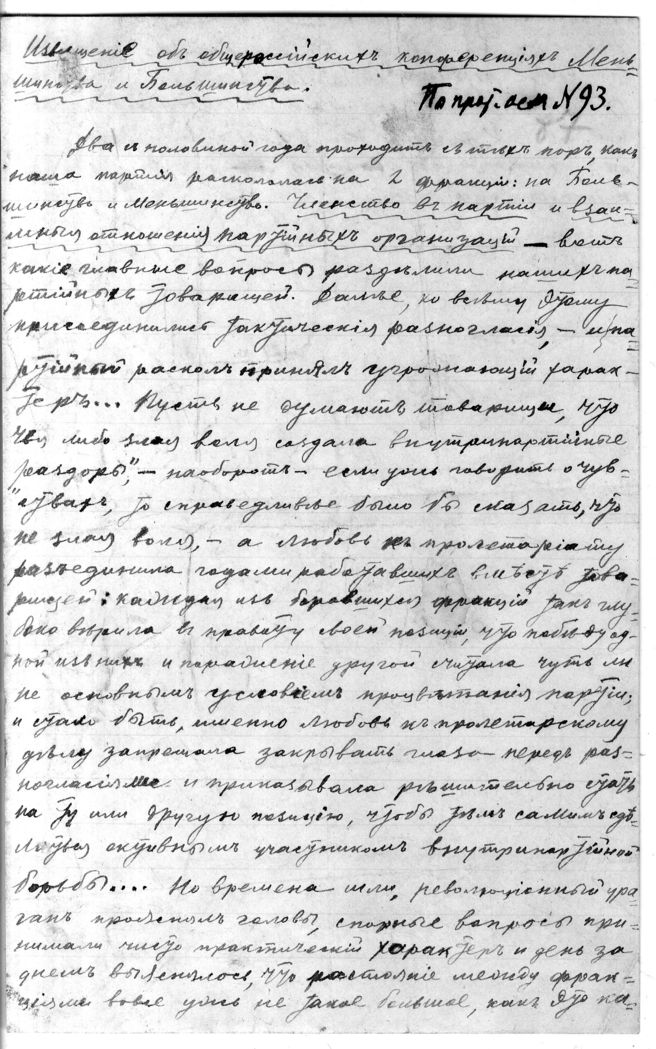 Извещеніе объ общероссійскихъ конференціяхъ Мень-
шинства и Большинства.
По прот. осм N 93.
Два съ половиной года проходитъ съ тѣхъ поръ, какъ
наша партія раскололась на 2 фракціи: на Боль-
шинство и Меньшинство. Членство въ партіи и взаи-
мныя отношенія партійныхъ организацій — вотъ
какіе главные вопросы раздѣлили нашихъ па-
ртійныхъ товарищей. Далѣе, ко всѣму этому
присоединились тактическія разногласія, — и па-
ртійный расколъ принялъ угрожающій харак-
теръ... Пусть не думаютъ товарищи, что
чья либо злая воля создала внутрипартійные
раздоры", — наоборотъ — если ужъ говорить о чув-
"ствахъ, то справедливѣе было бы сказать, что
не злая воля, — а любовь къ пролетаріату
разъединила годами работавшихъ вмѣстѣ това-
рищей: каждая изъ боровшихся фракцій такъ глу-
боко вѣрила въ правоту своей позиціи, что побѣду од-
ной изъ нихъ и пораженіе другой считала чуть ли
не основнымъ условіемъ процвѣтанія партіи;
и стало быть, именно любовь къ пролетарскому
дѣлу запрещала закрывать глаза передъ раз-
ногласіями и приказывала рѣшительно стать
на ту или другую позицію, чтобы тѣмъ самымъ сдѣ-
латься активнымъ участникомъ внутрипартійной
борьбы.... Но времена шли, революціонный ура-
ганъ прояснилъ головы, спорные вопросы при-
нимали чисто практическій характеръ и день за
днемъ выяснялось, что растояніе между фрак-
ціями вовсе ужъ не такое большое, какъ это ка-